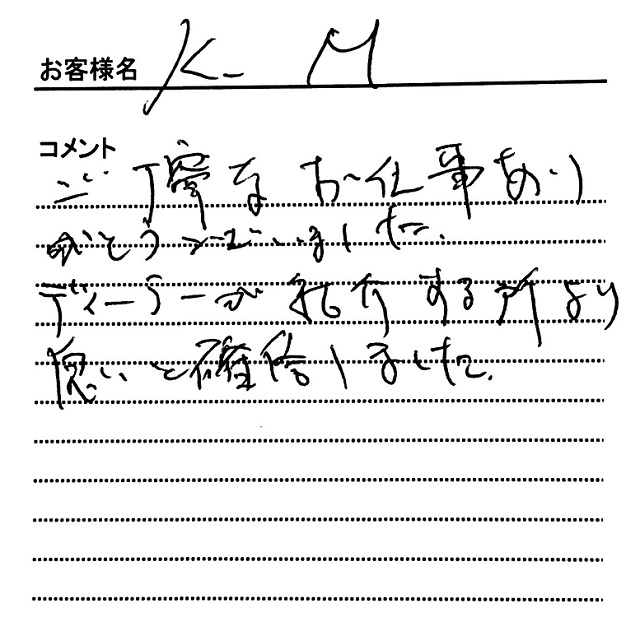 お客様名 K. M
コメント
ご丁寧なお仕事あり
がとうございました。
ディーラーが紹介する所より
優いと確信しました。